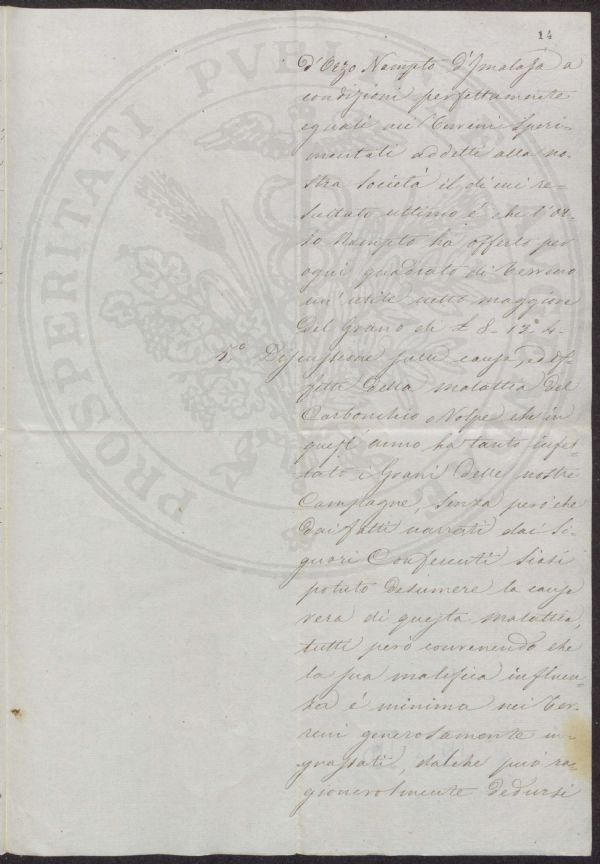 14
d'Orzo Nampto d'Jmalaja a
condizioni perfettamente
eguali nei Terreni Speri-
mentali addetti alla no-
stra Società il di cui re-
sultato ultimo é che l'Or-
zo Nampto ha offerto per
ogni quadrato di Terreno
un' utile netto maggiore
del Grano di £ 8-13-4-
5.o Discussione sulle cause, ed ef-
fetti della malattia del
Carbonchio o Volpe che in
quest' anno ha tanto infes-
tato i Grani delle nostre
Campagne, senza però che
dai fatti narrati dai Si-
gnori Conferenti siasi
potuto desumere la causa
vera di questa malattia,
tutti però convenendo che
la sua malefica influen-
za é minima nei Ter-
reni generosamente in-
grassati, dalche può ra-
gionevolmente dedursi
PROSPERITATI PVBLI